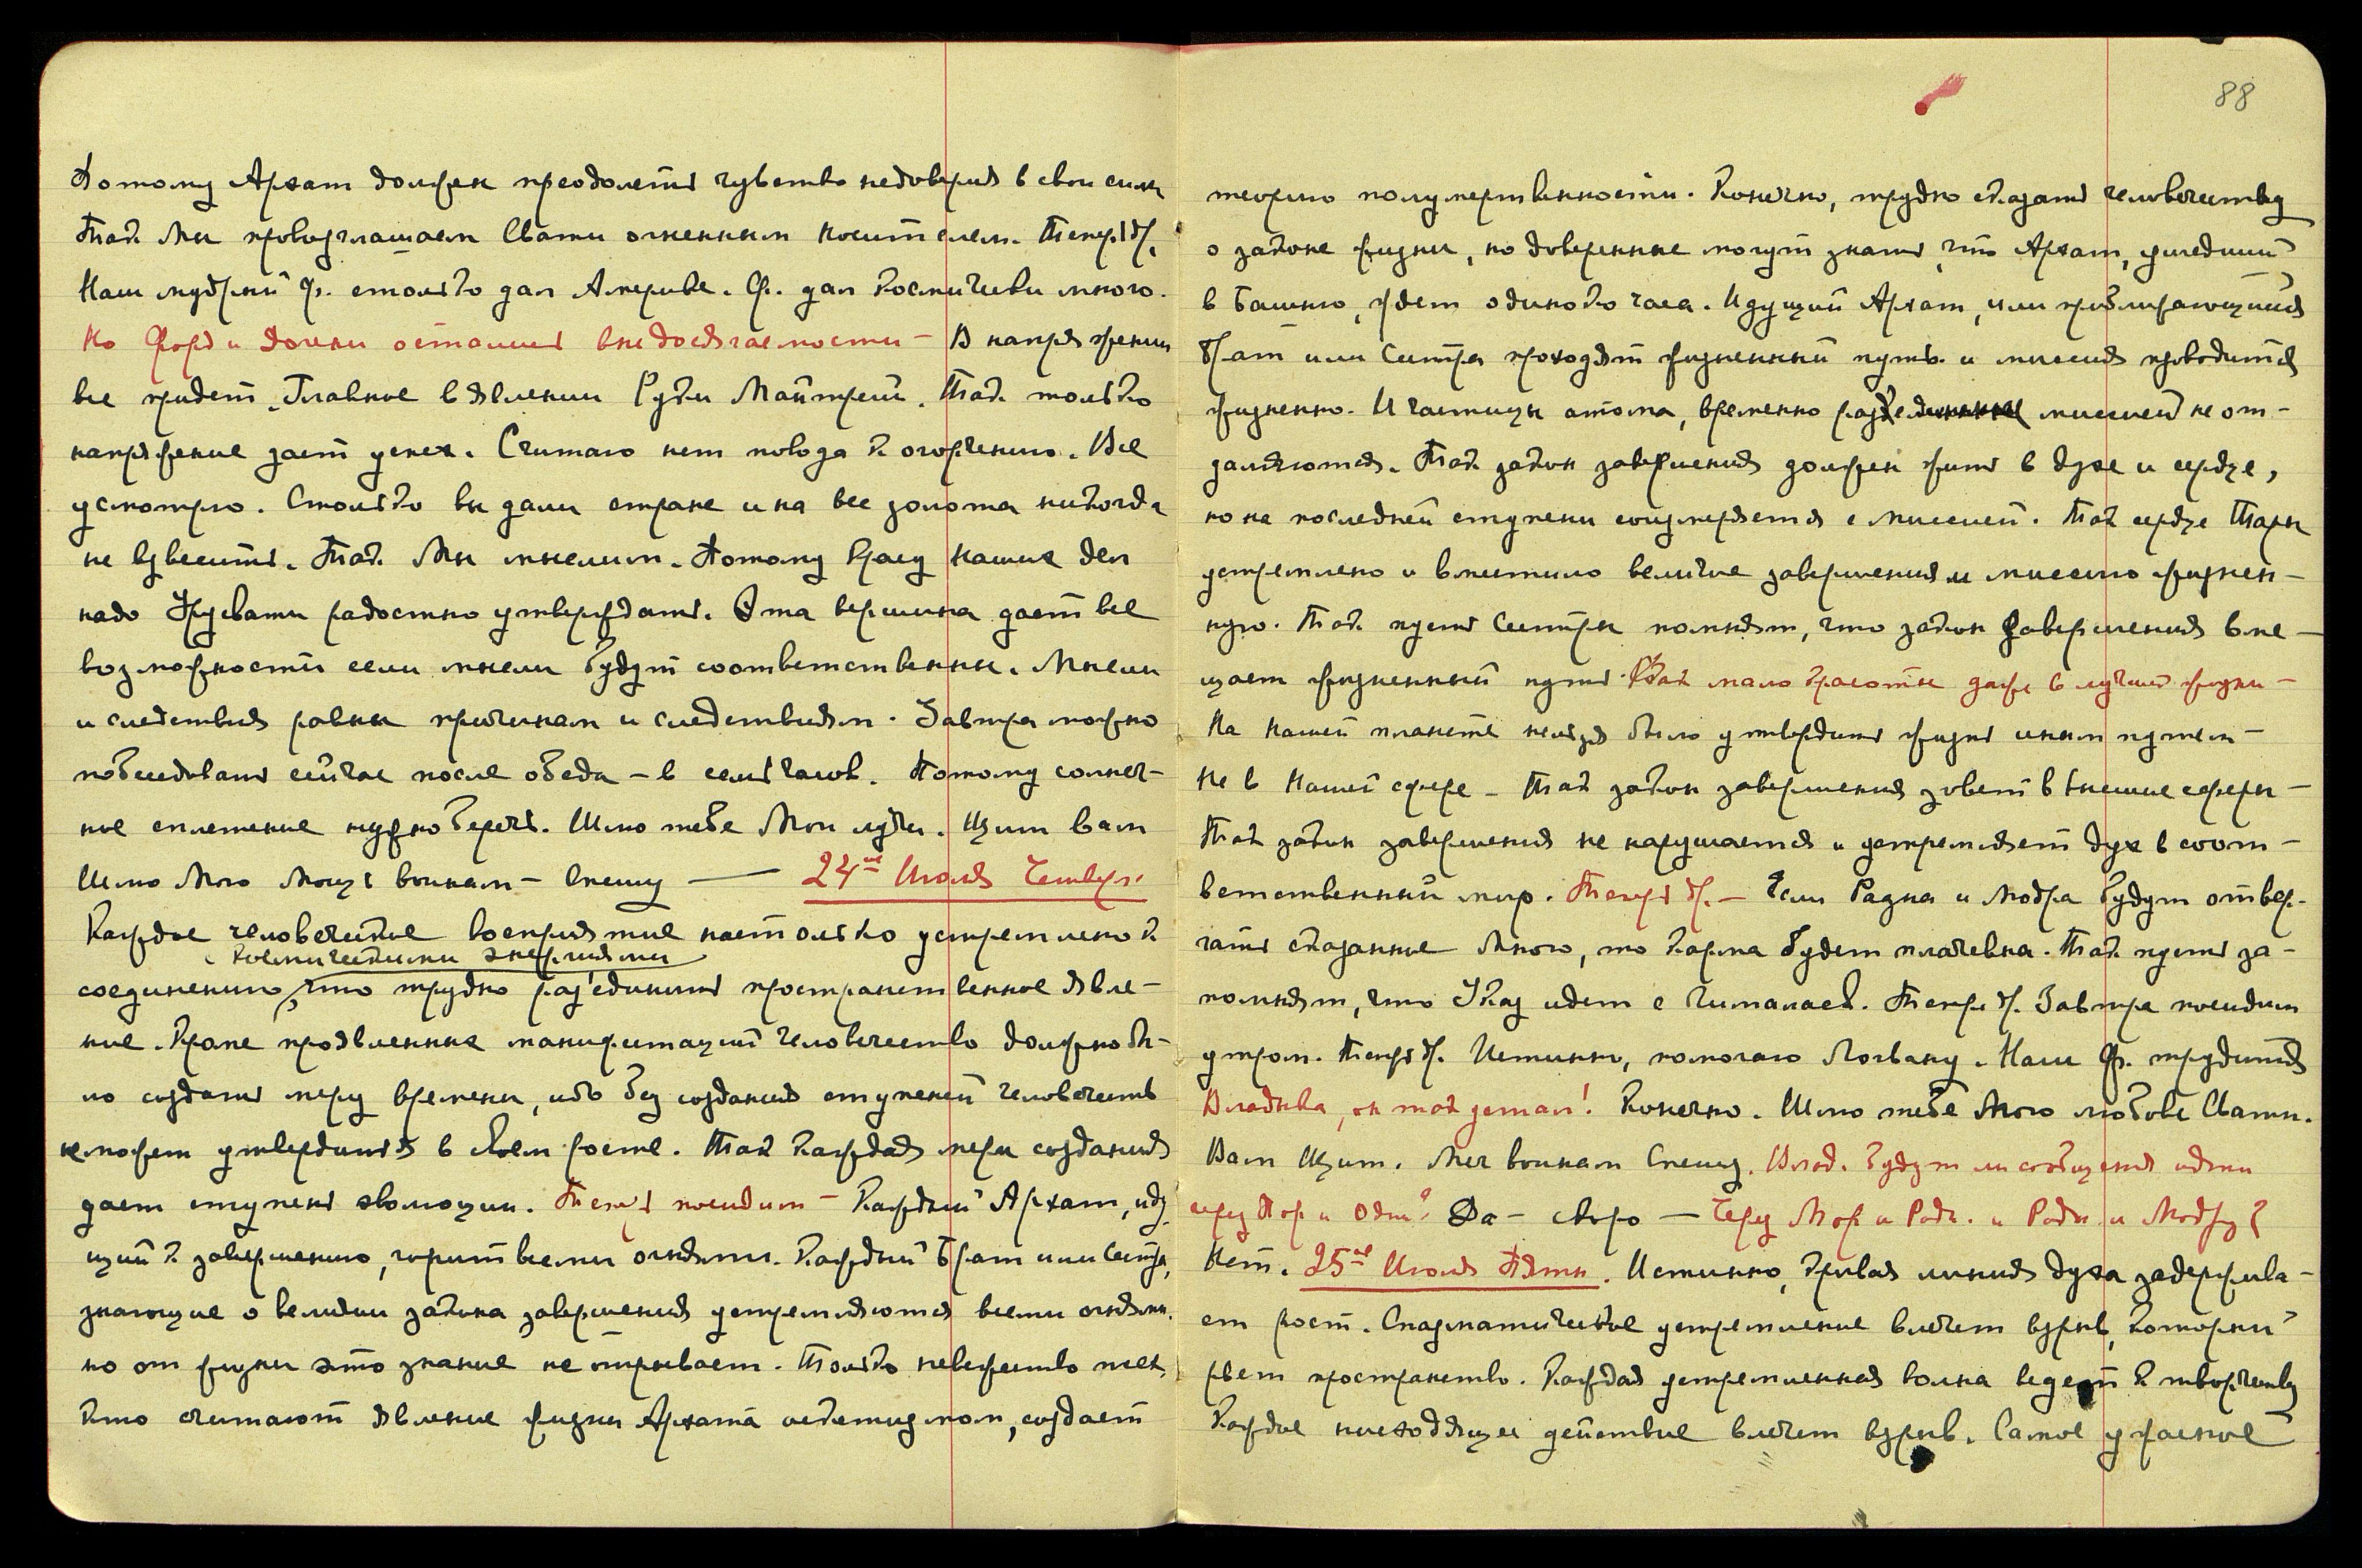 88
Потому Архат должен преодолеть чувство недоверия в свои силы
Так Мы провозглашаем Свати огненным носителем. Теперь др.
Наш мудрый Ф. столько дал Америке. Ф. дал космически много.
Но Форд и Дочки остались вне досягаемости – В напряжении
все придет. Главное в явлении Руки Майтрейи. Так только
напряжение дает успех. Считаю нет повода к огорчению. Все
усмотрю. Столько вы дали стране и на все золота никогда
не взвесить. Так Мы мыслим. Потому Красу наших дел
надо Урусвати радостно утверждать. Эта вершина дает все
возможности если мысли будут соответственны. Мысли
и следствия равны причинам и следствиям. Завтра можно
побеседовать сейчас после обеда – в семь часов. Потому солнеч-
ное сплетение нужно беречь. Шлю тебе Мои лучи. Щит вам
Шлю Мою Мощь воинам – Спешу — 24ое Июля Четверг.
Каждое человеческое восприятие настолько устремлено к
космическими энергиями
соединению, что трудно раз'единить пространственное явле-
ние. Кроме проявленных манифестаций человечество должно бы-
ло создать меру времени, ибо без создания ступеней человечество
не может утвердиться в своем росте. Так каждая мера создания
дает ступень эволюции. Теперь посидим – Каждый Архат, иду
щий к завершению, горит всеми огнями. Каждый Брат или Сестра,
знающие о величии закона завершения устремляются всеми огнями.
но от жизни это знание не отрывает. Только невежество тех,
кто считают явление жизни Архата аскетизмом, создает
теорию полумертвенности. Конечно, трудно сказать человечеству
о законе жизни, но доверенные могут знать, что Архат, ушедший
в Башню, ждет одинокого часа. Идущий Архат, или приближающийся
Брат или Сестра проходят жизненный путь и миссия проводится
жизненно. И частицы атома, временно миссией не от-
даляются. Так закон завершения должен жить в духе и сердце,
но на последней ступени соизмеряется с миссией. Так сердце Тары
устремлено и вместило величие завершения и миссию жизнен-
ную. Так пусть Сестры помнят, что закон завершения вме –
щает жизненный путь. Как мало красоты даже в лучшей жизни –
На нашей планете нельзя было утвердить жизнь иным путем –
Не в Нашей сфере – Так закон завершения зовет в высшие сферы –
Так закон завершения не нарушается и устремляет дух в соот –
ветственный мир. Теперь др. – Если Радна и Модра будут отвер-
гать сказанное Мною, то карма будет плачевна. Так пусть за –
помнят, что Указ идет с Гималаев. Теперь др. Завтра посидим
утром. Теперь др. Истинно, помогаю Логвану. Наш Ф. трудится
Владыка, он так устал! Конечно. Шлю тебе Мою любовь Свати.
Вам Щит. Меч воинам Спешу. Влад. будут ли сообщения идти
через Пор и Одн? Да – скоро — Через Мор и Радн. и Радн. и Модру?
Нет. 25ое Июля Пятн. Истинно, кривая линия духа задержива –
ет рост. Спазматическое устремление влечет взрыв, который
рвет пространство. Каждая устремленная волна ведет к творчеству
Каждое нисходящее действие влечет взрыв. Самое ужасное